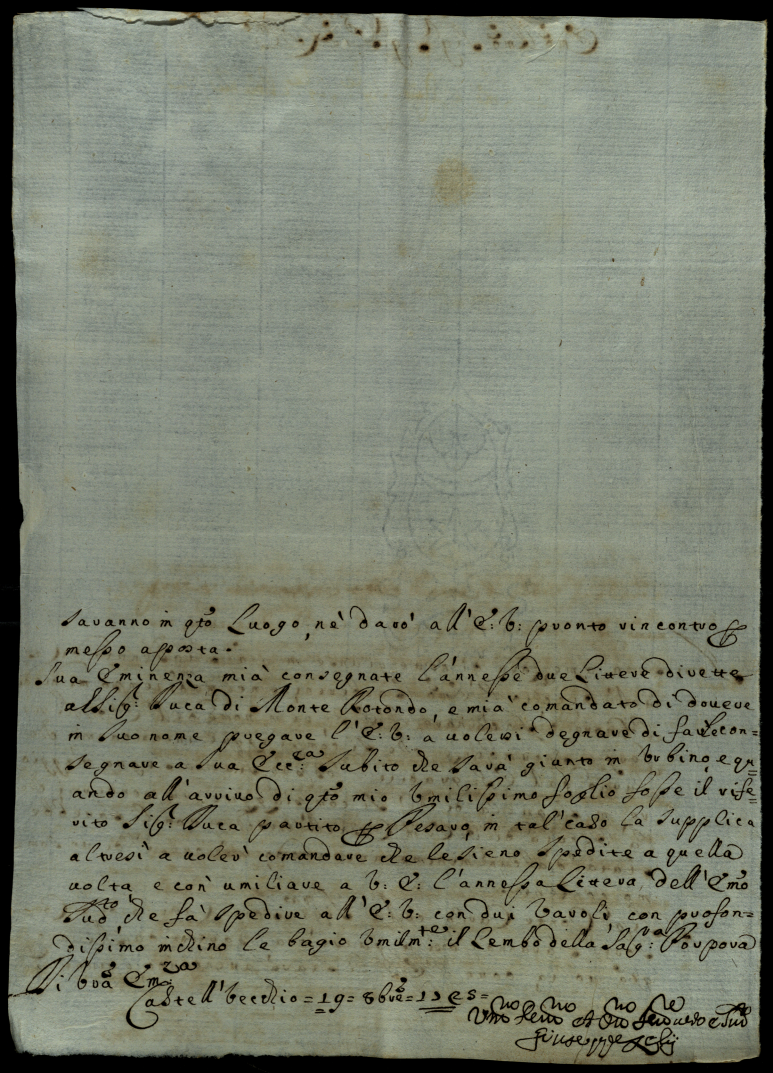 saranno in qto Luogo, nè darò all'E: V: pronto rincontro p
messo aposta.
Sua Eminenza mià consegnate l'annesse due Littere dirette
al Sigr: Duca di Monte Rotondo, e mià comandato di dovere
in suo nome pregare l'E: V: à volersi degnare di farle con=
segnare a Sua Ecc:za subito che sarà giunto in Urbino, e qu
ando all'arrivo di qto mio Umilissimo foglio fosse il rife=
rito Sigr: Duca partito p Pesaro, in tal caso la supplica
altresì a voler comandare che le sieno spedite a quella
volta, e con umiliare a V: E: l'annessa Littera dell'Emo
che fà spedire all'E: V: con dui Varoli con profon=
dissimo inchino le bagio Umilmte: il Lembo della Sagra: Porpora
Di Vra Emza
Castell'Vecchio = 19 = 8bre =
Umo Devo et Obo
Giuseppe